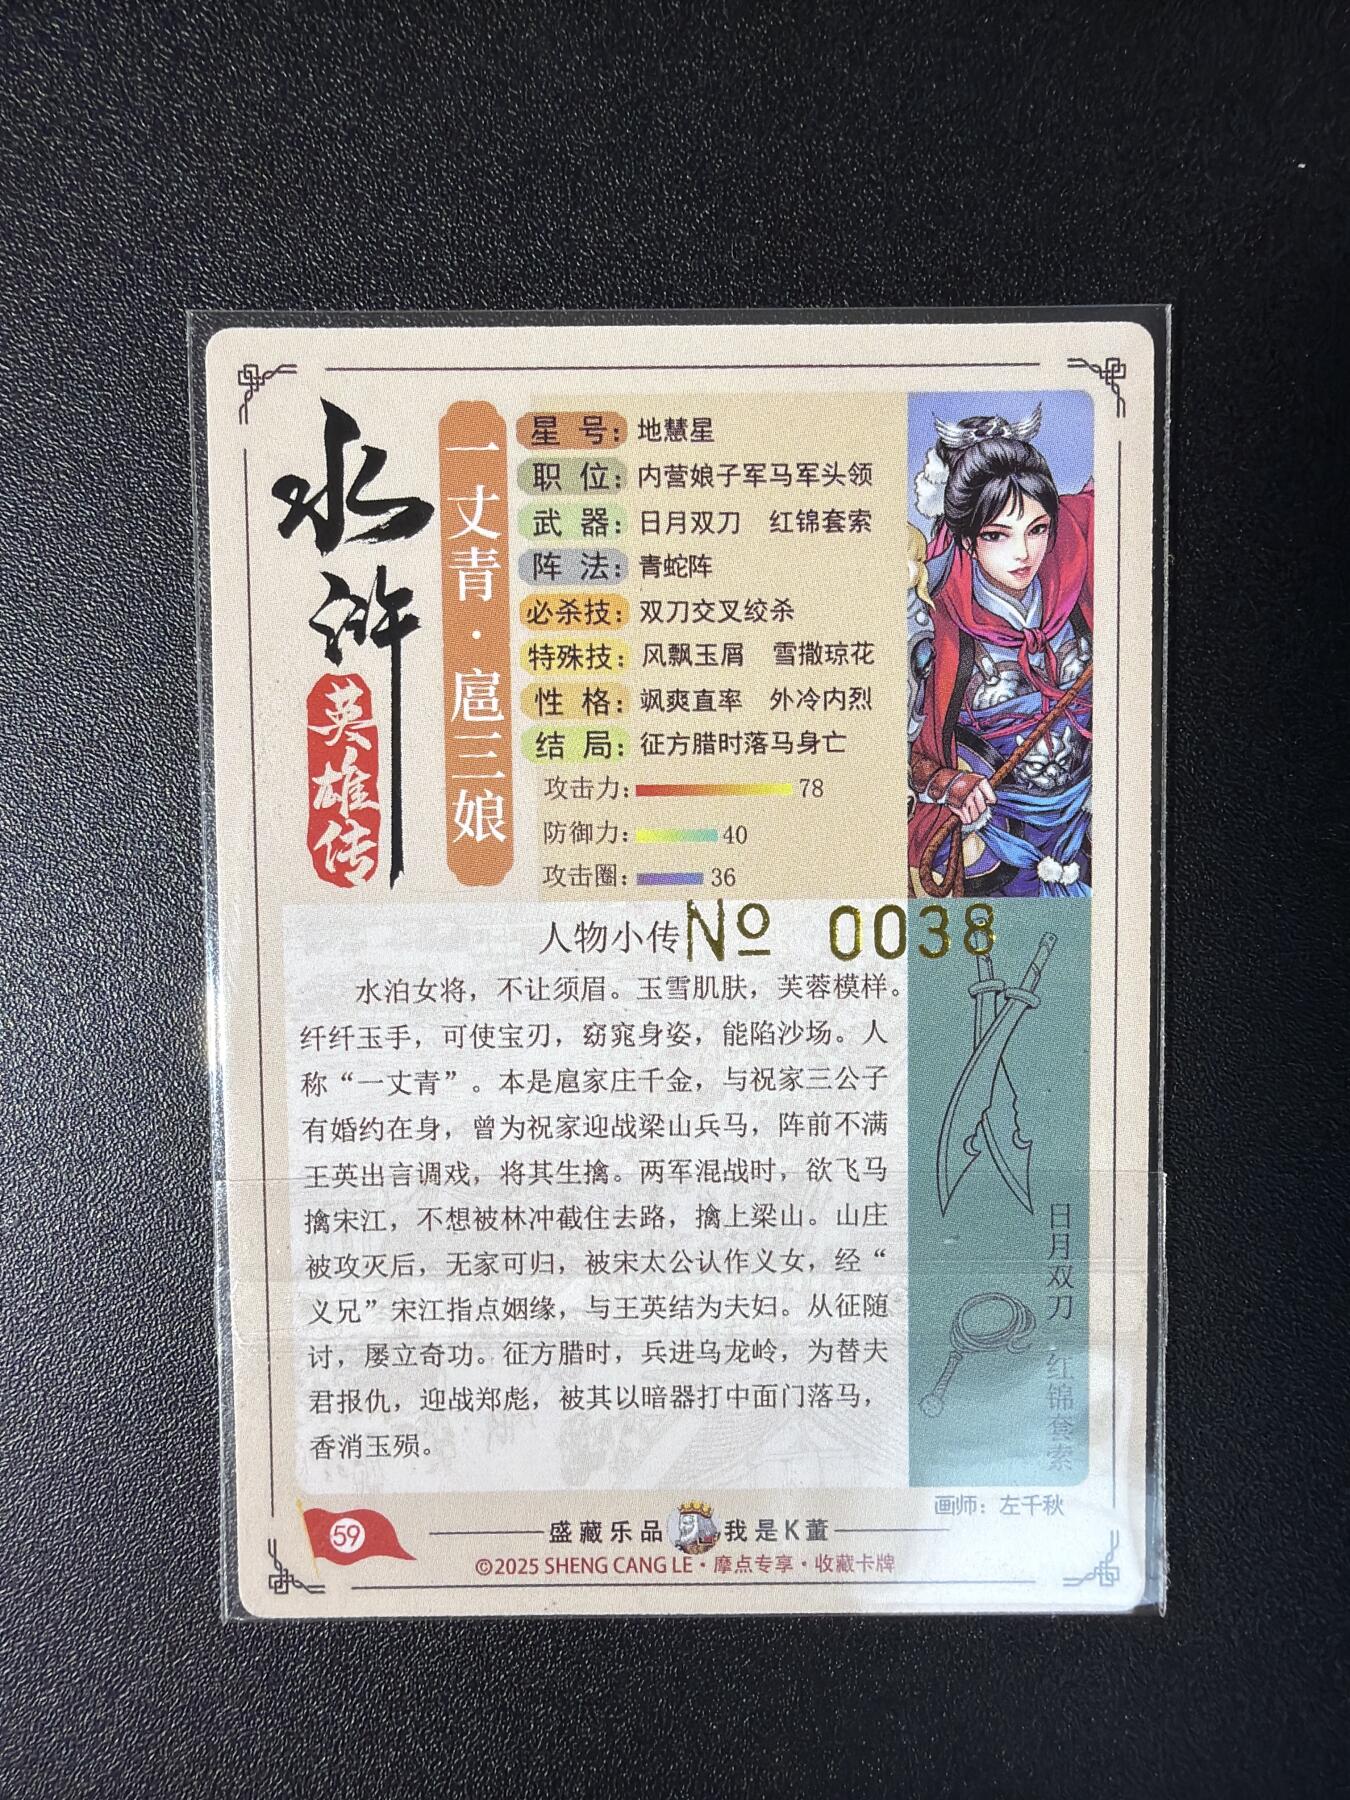 水浒
英雄传
一丈青·扈三娘
星号：地慧星
职位：内营娘子军马军头领
武器：日月双刀 红锦套索
阵法：青蛇阵
必杀技：双刀交叉绞杀
特殊技：风飘玉屑 雪撒琼花
性格：飒爽直率 外冷内烈
结局：征方腊时落马身亡
攻击力：78
防御力：40
攻击圈：36
人物小传
№ 0038
水泊女将，不让须眉。玉雪肌肤，芙蓉模样。
纤纤玉手，可使宝刃，窈窕身姿，能陷沙场。人
称“一丈青”。本是扈家庄千金，与祝家三公子
有婚约在身，曾为祝家迎战梁山兵马，阵前不满
王英出言调戏，将其生擒。两军混战时，欲飞马
擒宋江，不想被林冲截住去路，擒上梁山。山庄
被攻灭后，无家可归，被宋太公认作义女，经“
义兄”宋江指点姻缘，与王英结为夫妇。从征随
讨，屡立奇功。征方腊时，兵进乌龙岭，为替夫
君报仇，迎战郑彪，被其以暗器打中面门落马，
香消玉殒。
日月双刀 红锦套索
画师：左千秋
59
盛藏乐品 我是K董
©2025 SHENG CANG LE·摩点专享·收藏卡牌